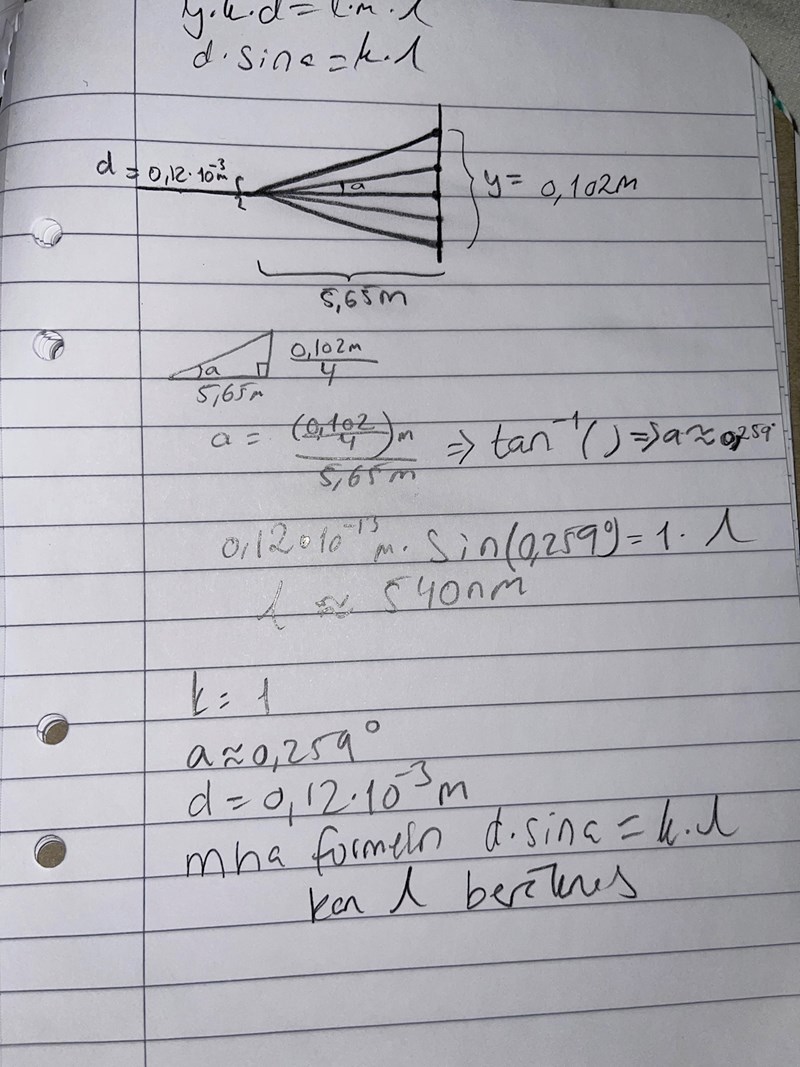 y·k·d = l·m·λ
d·sina = k·λ
d = 0,12·10⁻³m
a
y = 0,102m
5,65m
a
0,102m
4
5,65m
a = (0,102/4)m / 5,65m ⇒ tan⁻¹( ) ⇒ a ≈ 0,259°
0,12·10⁻¹³m · sin(0,259°) = 1·λ
λ ≈ 540nm
k = 1
a ≈ 0,259°
d = 0,12·10⁻³m
mha formeln d·sina = k·λ
kan λ beräknas